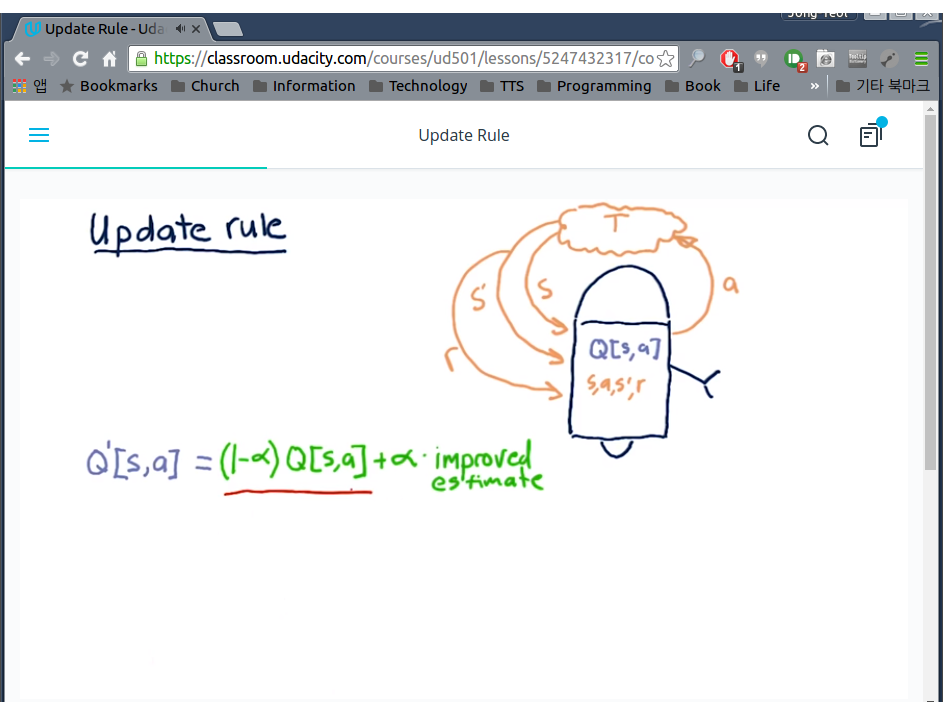 Jong Yeol
Update Rule - Uda
https://classroom.udacity.com/courses/ud501/lessons/5247432317/co
앱 Bookmarks Church Information Technology TTS Programming Book Life » 기타 북마크
1
2
Update Rule
Update rule
T
s'
s
a
r
Q[s,a]
s,a,s',r
Q'[s,a] = (1-α) Q[s,a] + α · improved
estimate